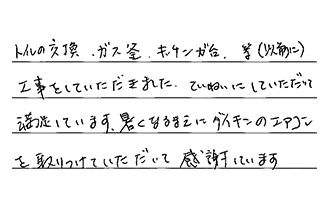 トイレの交換、ガス釜、キッチンガス台、等(以前に)
工事をしていただきました。ていねいにしていただいて
満足しています、暑くなるまえにダイキンのエアコン
を取りつけていただいて感謝しています